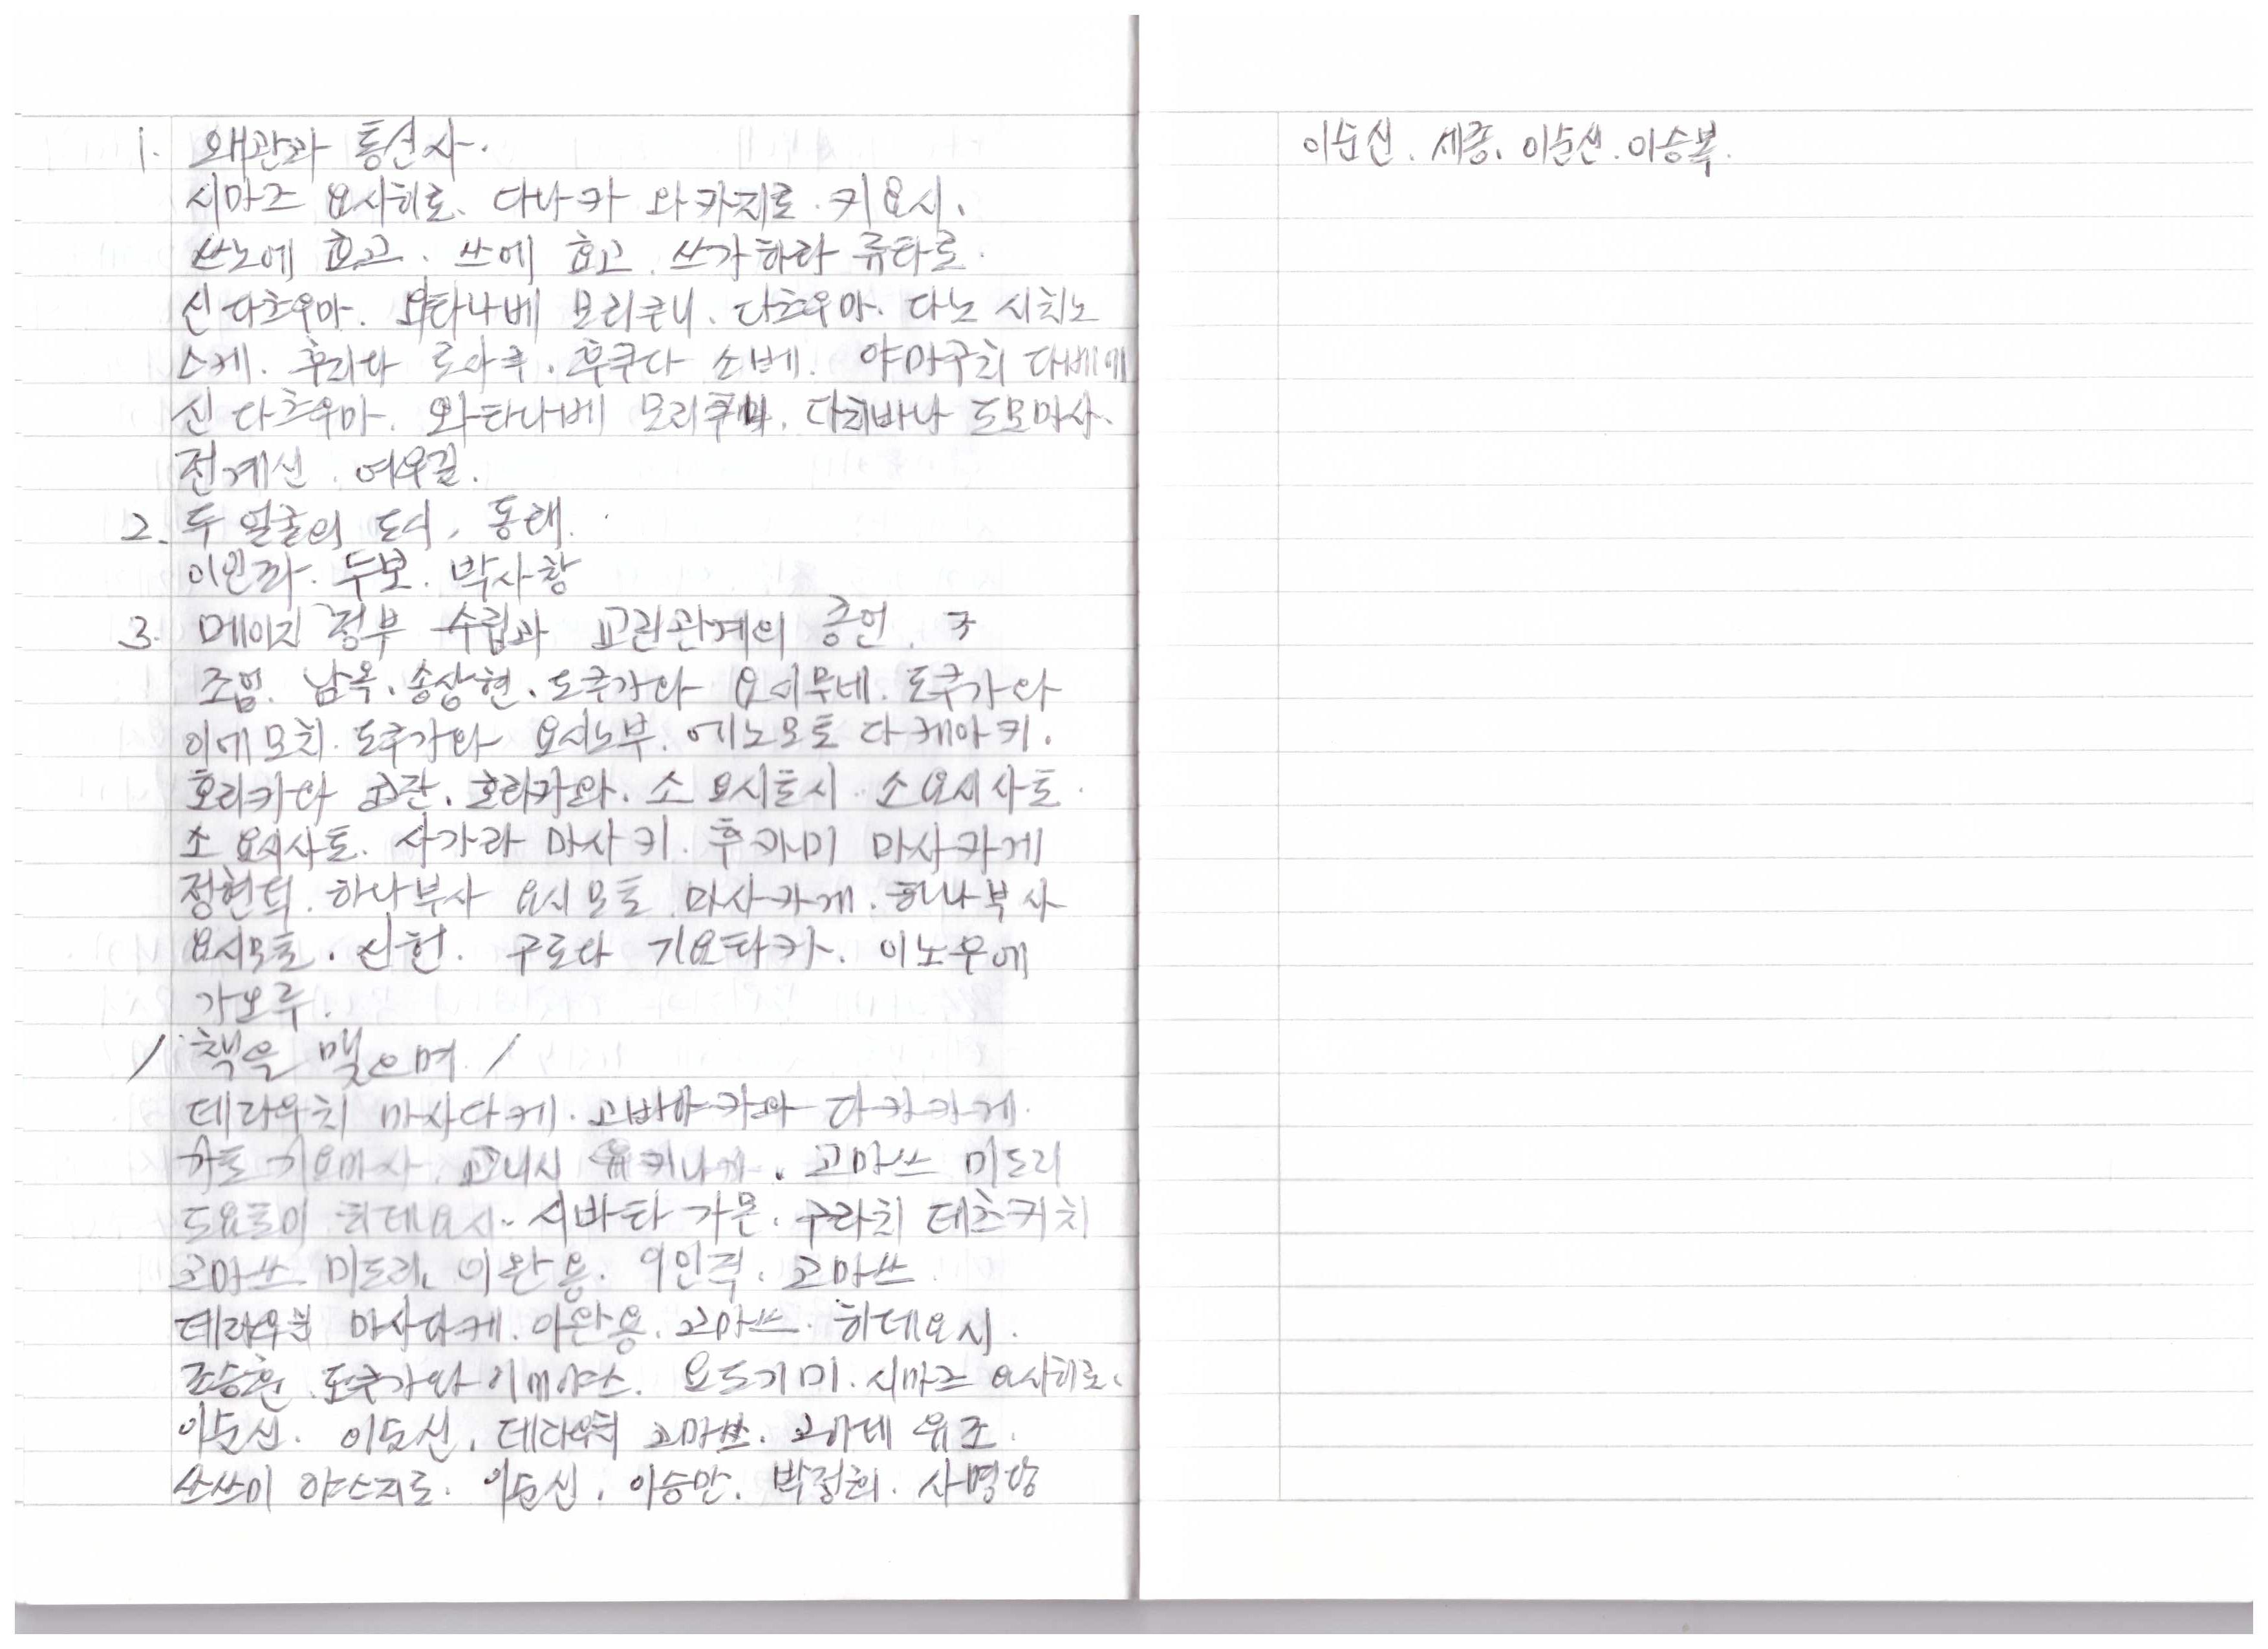 1. 왜관과 통신사.
시마즈 요시히로. 다나카 와카지로. 키요시.
쓰노에 효고. 쓰에 효고. 쓰가하라 류타로.
신 다츠우마. 와타나베 모리쿠니. 다츠우마. 다노 시치노
스케. 후지타 로사쿠. 후쿠다 소베. 야마구치 다베에
신 다츠우마. 와타나베 모리쿠니. 다치바나 도모마사.
전계신. 여우길.
2. 두 얼굴의 도시, 동래.
이인좌. 두보. 박사창
3. 메이지 정부 수립과 교린관계의 종언.
조엄. 남옥. 송상현. 도쿠가와 요시무네. 도쿠가와
이에모치. 도쿠가와 요시노부. 에노모토 다케아키.
호리카와 호리카와. 소 요시토시. 소 요시사토.
소 요시사토. 사가라 마사키. 후카미 마사카게
정현덕. 하나부사 요시모토. 마사카게. 하나부사
요시모토. 신헌. 구로다 기요타카. 이노우에
가오루.
/ 책을 맺으며 /
데라우치 마사다케. 고바야카와 다카카게.
가토 기요마사. 고니시 유키나가. 고마쓰 미도리
도요토미 히데요시. 시바타 가몬. 구라치 데츠키치
고마쓰 미도리. 이완용. 이인직. 고마쓰
데라우치 마사다케. 이완용. 고마쓰. 히데요시.
조승훈. 도쿠가와 이에야스. 요도기미. 시마즈 요시히로.
이순신. 이순신. 데라우치 고마쓰. 고하데 유조.
쓰쓰미 야스지로. 이순신. 이승만. 박정희. 사명당
이순신. 세종. 이순신. 이승복.